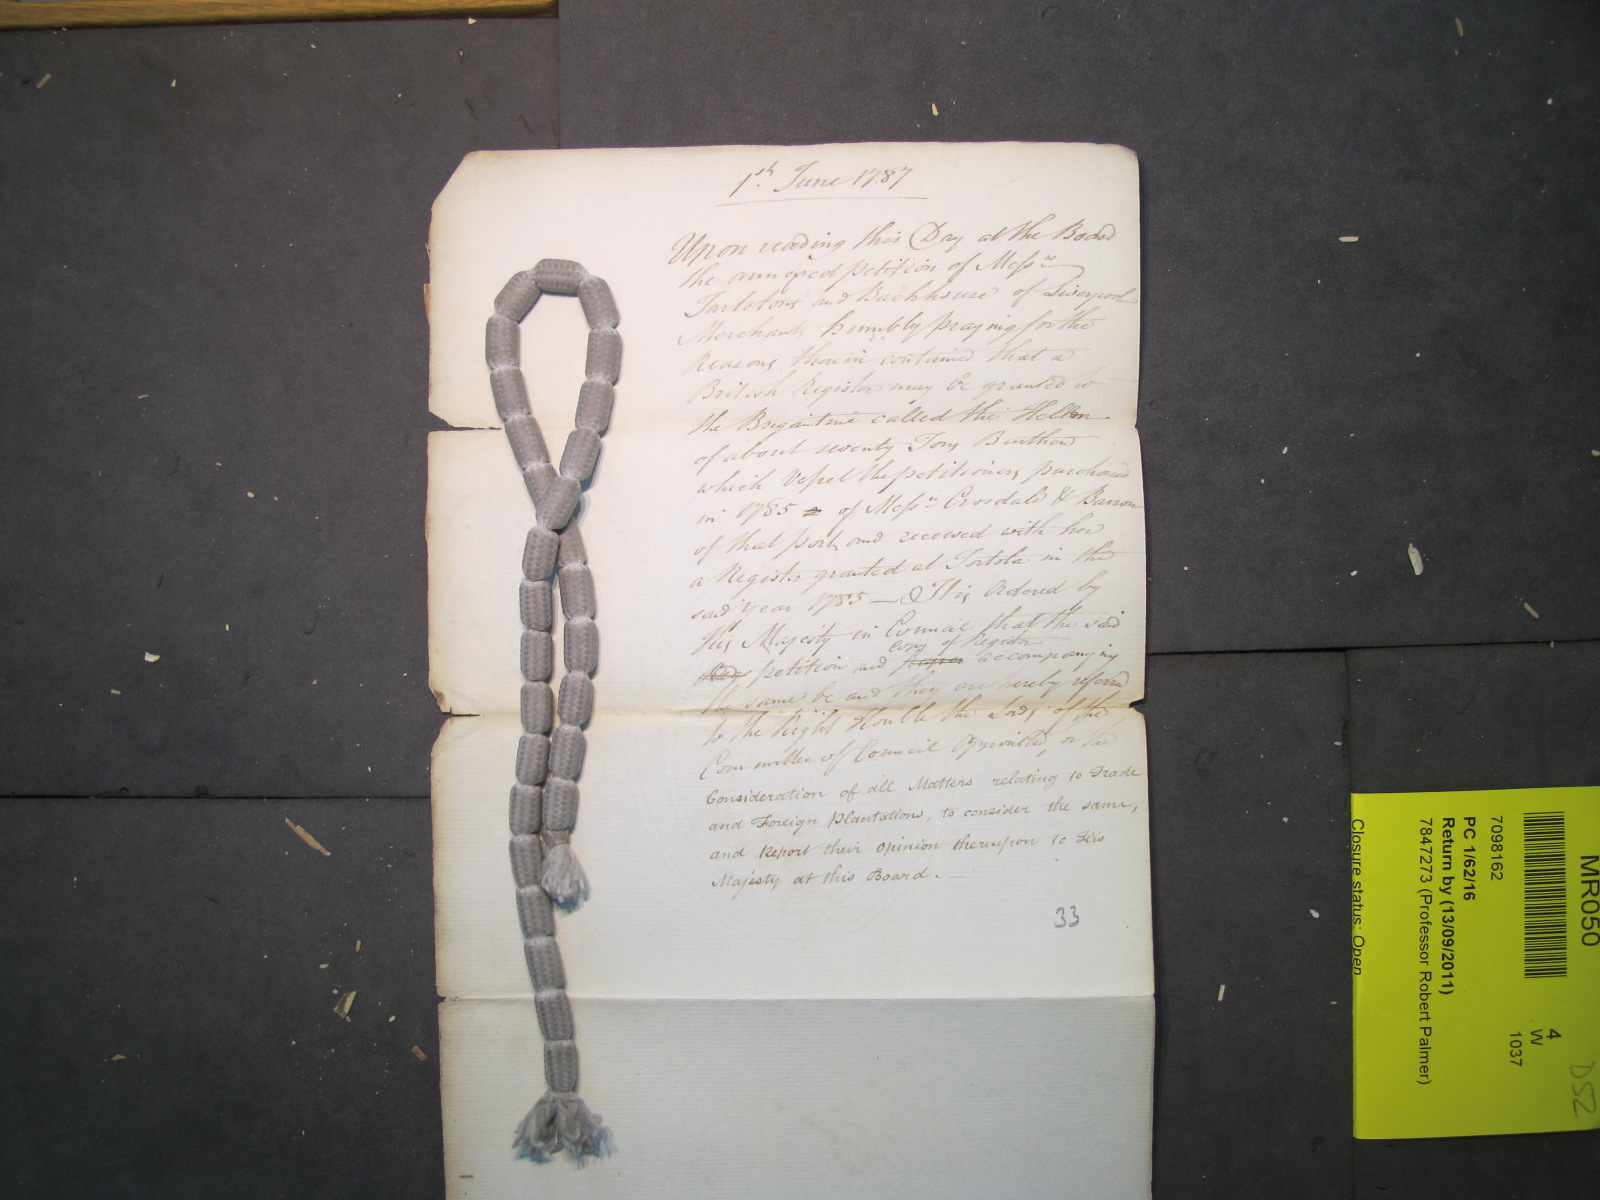 1st. June 1787
Upon reading this Day at the Board
the annexed petition of Messrs
Tarletons and Backhouse of Liverpool
Merchants humbly praying for the
reasons therein contained that a
British Register may be granted to
the Brigantine called the Hellen
of about seventy Tons Burthen
which Vessel the petitioners purchased
in 1785 of Messrs Crosdale & Barrow
of that port and received with her
a Register granted at Tortola in the
said year 1785 — It is Ordered by
His Majesty in Council that the said
copy of Register
petition and paper accompanying
the same be and they are hereby referred
to the Right Honble the Lords of the
Committee of Council appointed, for the
Consideration of all Matters relating to Trade
and Foreign Plantations, to consider the same,
and Report their Opinion thereupon to His
Majesty at this Board. —
33
MR050
4
W
1037
DS2
7098162
PC 1/62/16
Return by (13/09/2011)
7847273 (Professor Robert Palmer)
Closure status: Open